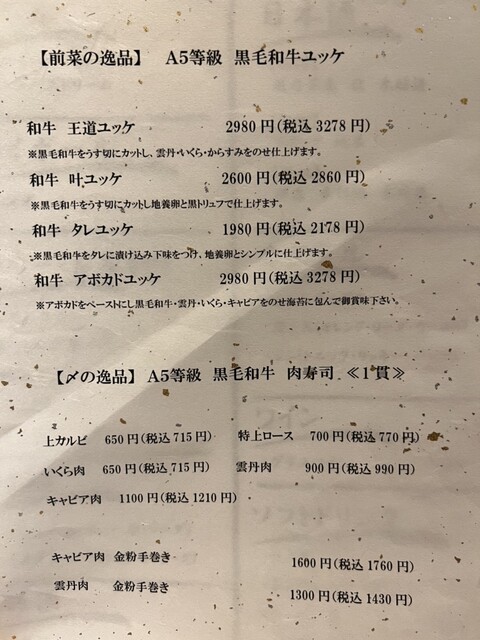 【前菜の逸品】 A5等級 黒毛和牛ユッケ
和牛 王道ユッケ 2980円(税込3278円)
※黒毛和牛をうす切にカットし、雲丹・いくら・からすみをのせ仕上げます。
和牛 叶ユッケ 2600円(税込2860円)
※黒毛和牛をうす切にカットし地養卵と黒トリュフで仕上げます。
和牛 タレユッケ 1980円(税込2178円)
※黒毛和牛をタレに漬け込み下味をつけ、地養卵とシンプルに仕上げます。
和牛 アボカドユッケ 2980円(税込3278円)
※アボカドをペーストにし黒毛和牛・雲丹・いくら・キャビアをのせ海苔に包んで御賞味下さい。
【〆の逸品】 A5等級 黒毛和牛 肉寿司 ≪1貫≫
上カルビ 650円(税込715円) 特上ロース 700円(税込770円)
いくら肉 650円(税込715円) 雲丹肉 900円(税込990円)
キャビア肉 1100円(税込1210円)
キャビア肉 金粉手巻き 1600円(税込1760円)
雲丹肉 金粉手巻き 1300円(税込1430円)